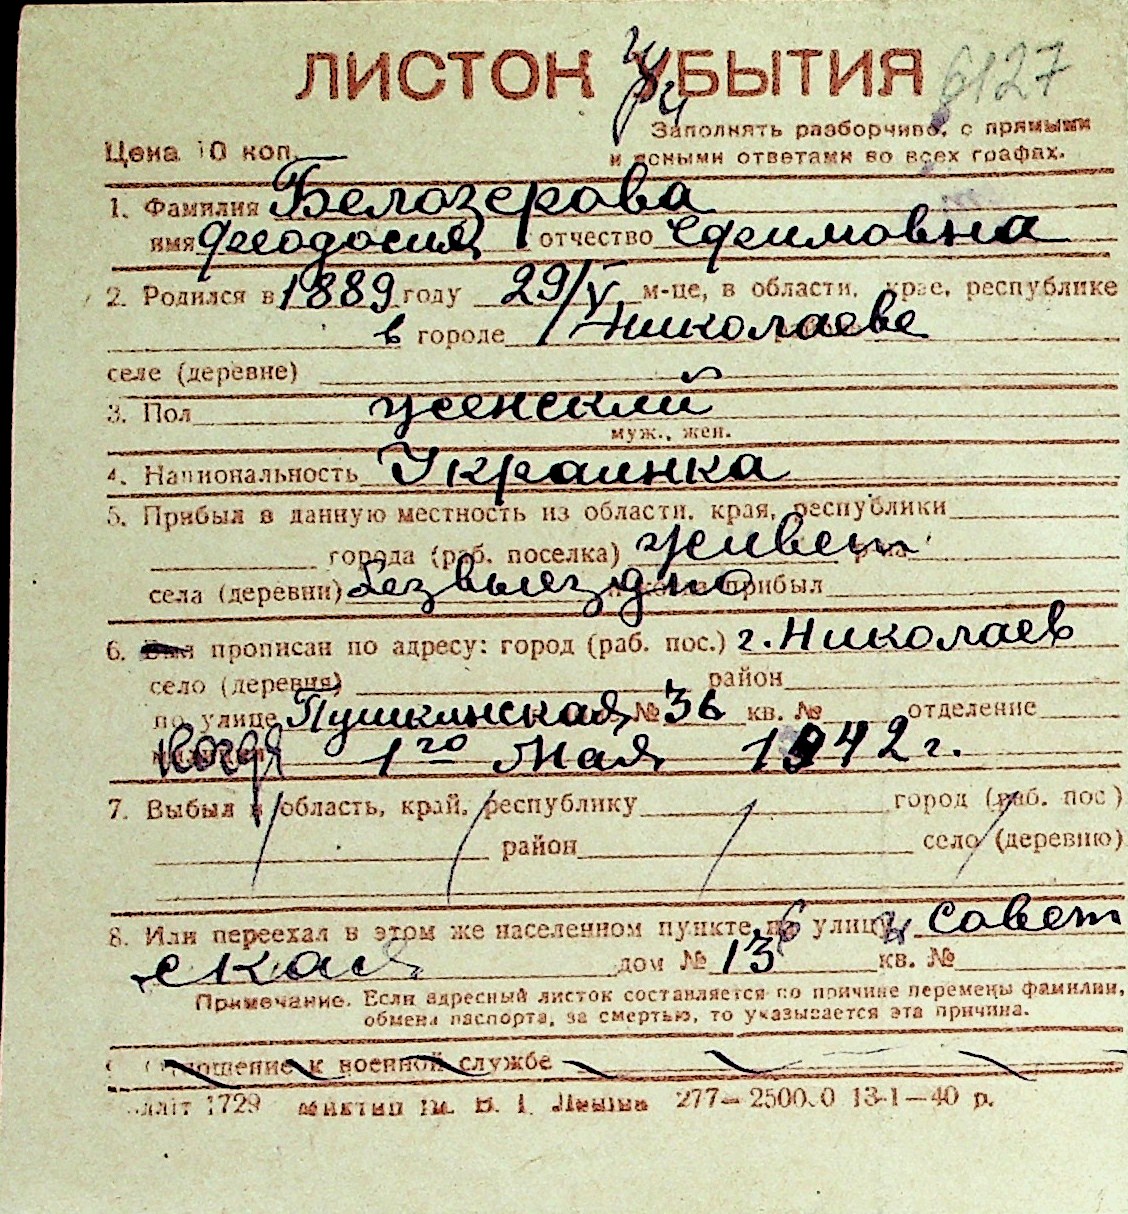 ЛИСТОК УБЫТИЯ 6127
Цена 10 коп.
Заполнять разборчиво, с прямыми
и ясными ответами во всех графах.
1. Фамилия Белозерова
имя Феодосия отчество Ефимовна
2. Родился в 1889 году 29/V м-це, в области, крае, республике
в городе Николаеве
селе (деревне)
3. Пол женский
муж., жен.
4. Национальность Украинка
5. Прибыл в данную местность из области, края, республики
города (раб. поселка) живет
села (деревни) безвыездно прибыл
6. Был прописан по адресу: город (раб. пос.) г. Николаев
село (деревня) район
по улице Пушкинская № 36 кв. № отделение
когда 1го Мая 1942 г.
7. Выбыл в область, край, республику город (раб. пос.)
район село (деревню)
8. Или переехал в этом же населенном пункте по улице Совет
ская дом № 13 кв. №
Примечание. Если адресный листок составляется по причине перемены фамилии,
обмена паспорта, за смертью, то указывается эта причина.
9. Отношение к военной службе
1729 277— 13-1—40 р.